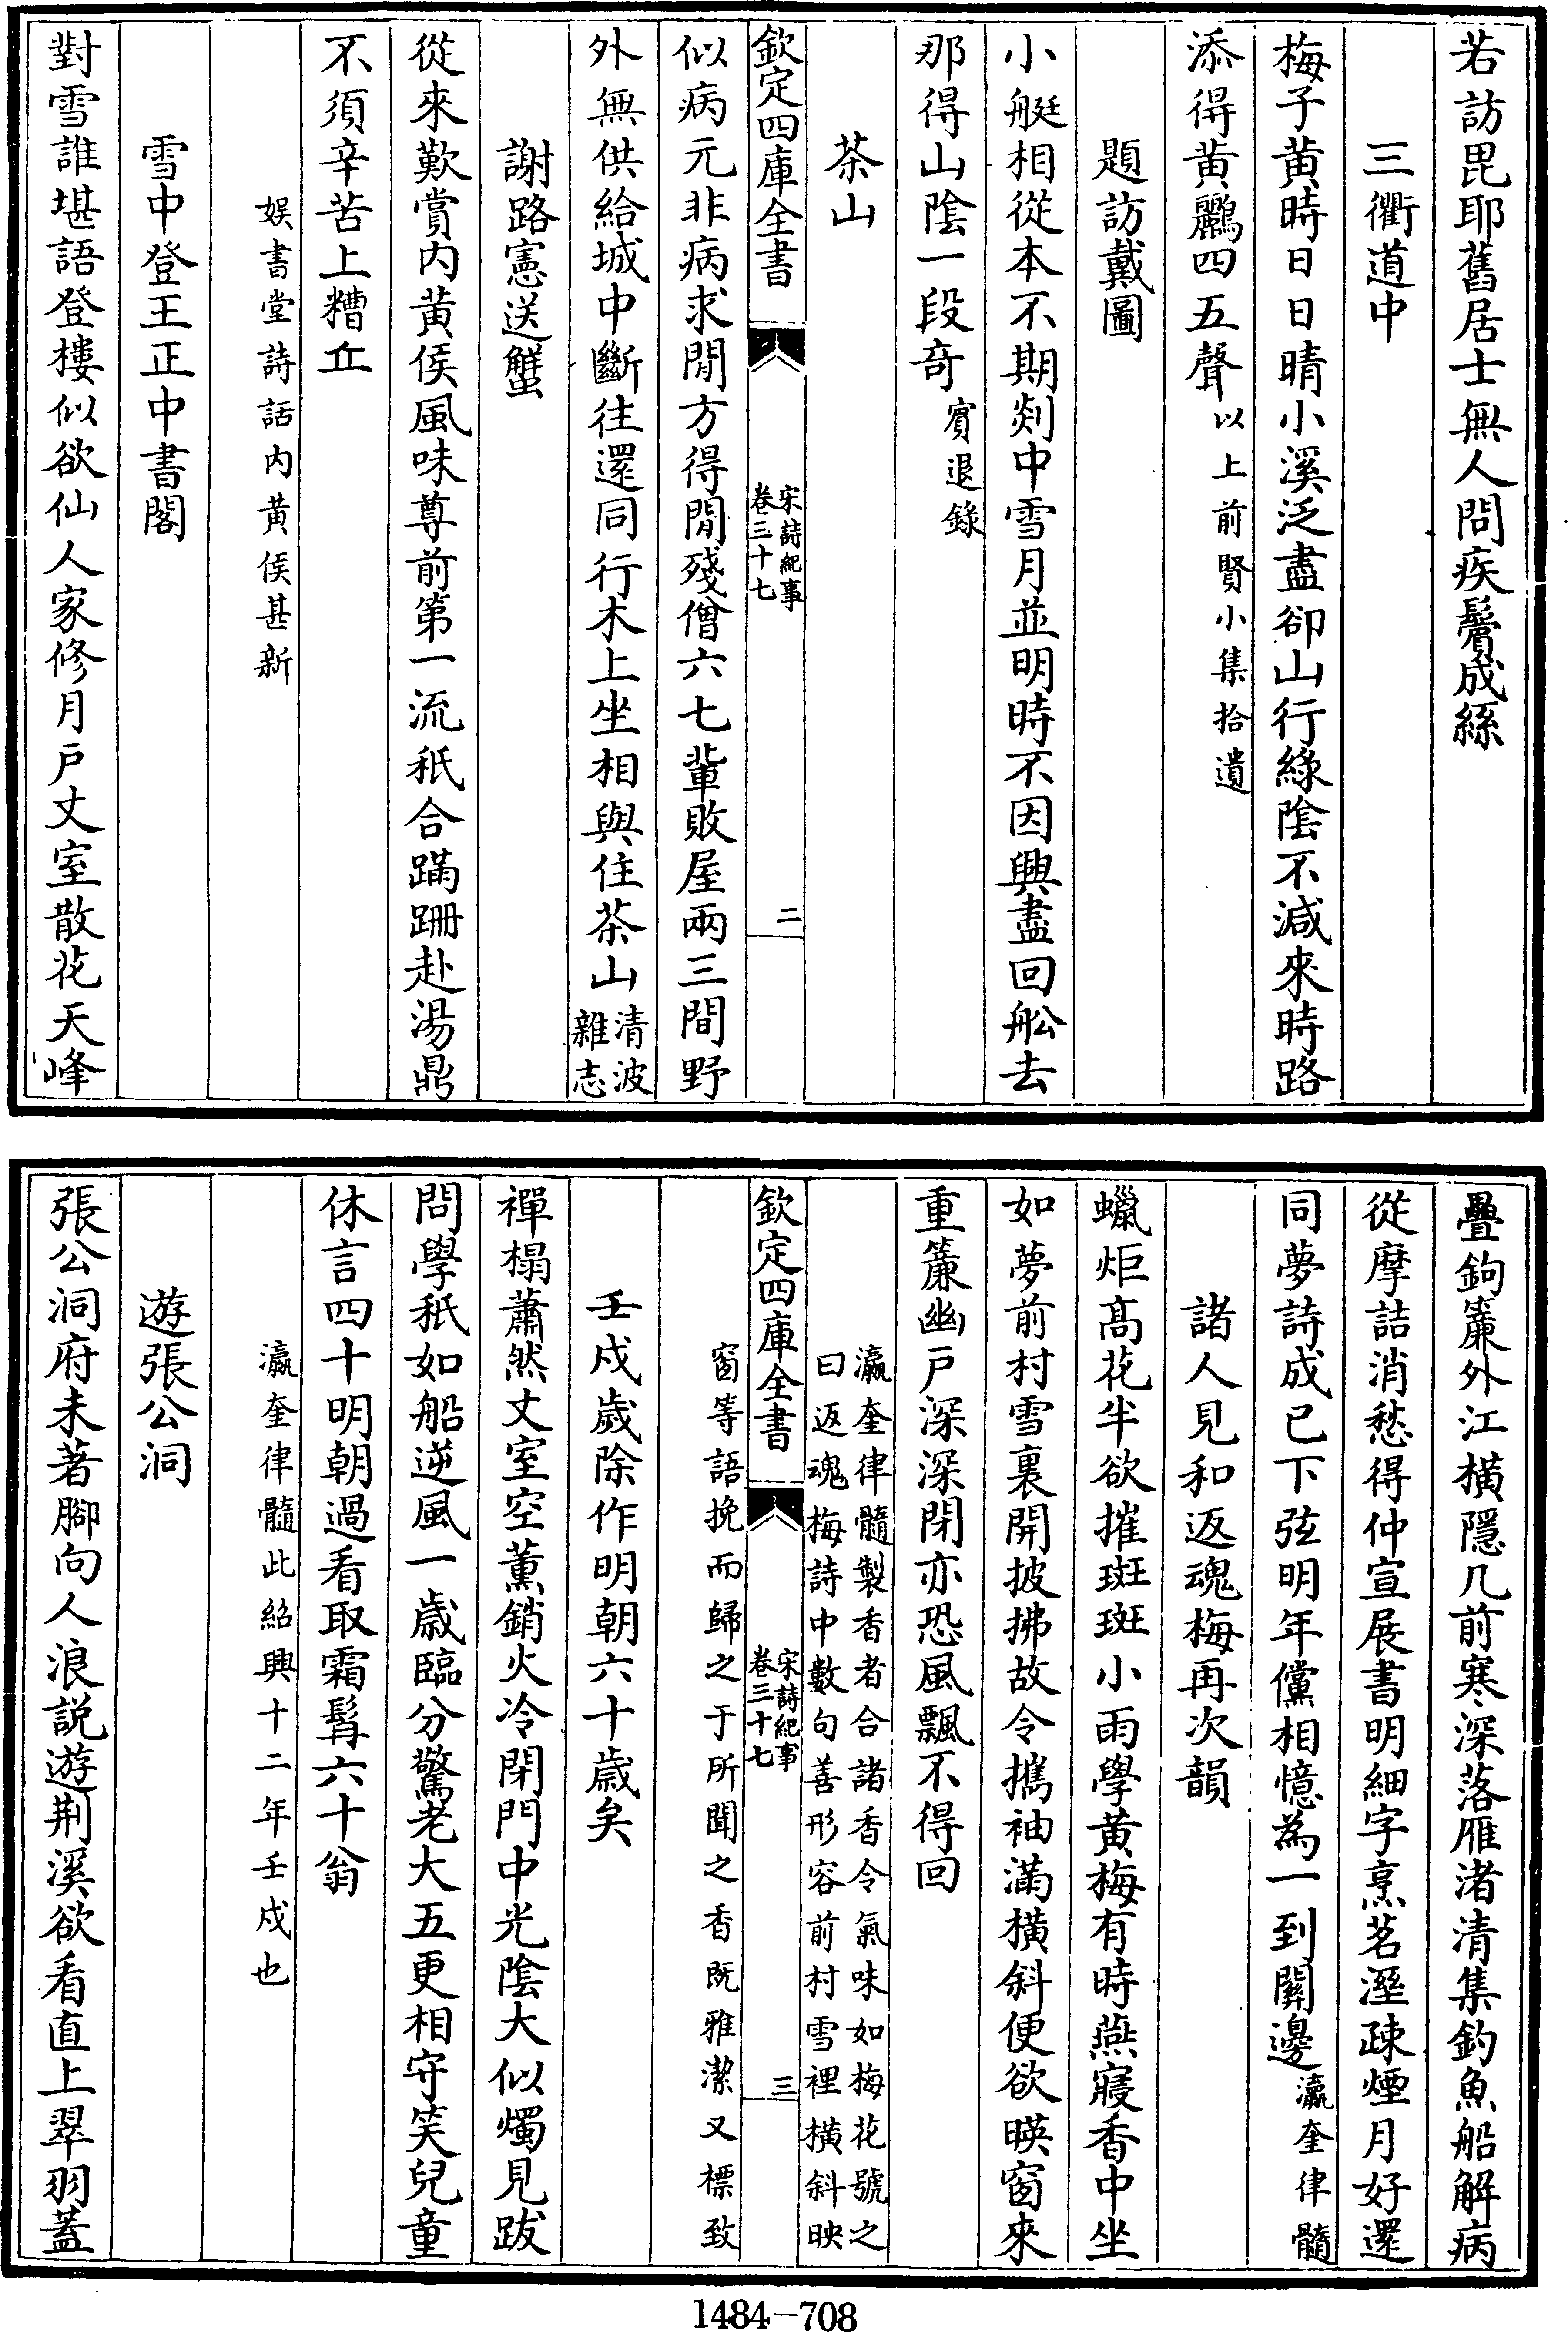 若訪毘耶舊居士無人問疾鬢成絲
三衢道中
梅子黄時日日晴小溪泛盡卻山行緑陰不減來時路
添得黄鸝四五聲以上前賢小集拾遺
題訪戴圖
小艇相從本不期剡中雪月並明時不因興盡回船去
那得山陰一段奇賓退錄
茶山
欽定四庫全書
宋詩紀事
卷三十七
二
似病元非病求閒方得閒殘僧六七軰敗屋兩三間野
外無供給城中斷往還同行木上坐相與住茶山清波
雜志
謝路憲送蟹
從來歎賞内黄侯風味尊前第一流秖合蹣跚赴湯鼎
不須辛苦上糟丘
娛書堂詩話内黄侯甚新
雪中登王正中書閣
對雪誰堪語登樓似欲仙人家修月戶丈室散花天峰
疊鉤簾外江橫隱几前寒深落雁渚清集釣魚船解病
從摩詰消愁得仲宣展書明細字烹茗溼疎煙月好還
同夢詩成已下弦明年儻相憶為一到闗邊瀛奎律髓
諸人見和返魂梅再次韻
蠟炬髙花半欲摧斑斑小雨學黄梅有時燕寢香中坐
如夢前村雪裏開披拂故令攜袖滿橫斜便欲暎窗來
重簾幽戶深深閉亦恐風飄不得回
瀛奎律髓製香者合諸香令氣味如梅花號之
曰返魂梅詩中數句善形容前村雪裡橫斜映
欽定四庫全書
宋詩紀事
卷三十七
三
窗等語挽而歸之于所聞之香既雅潔又標致
壬戌歲除作明朝六十歲矣
禪榻蕭然丈室空薰銷火冷閉門中光陰大似燭見跋
問學秖如船逆風一歲臨分驚老大五更相守笑兒童
休言四十明朝過看取霜髯六十翁
瀛奎律髓此紹興十二年壬戌也
遊張公洞
張公洞府未著腳向人浪説遊荆溪欲看直上翠羽蓋
1484-708